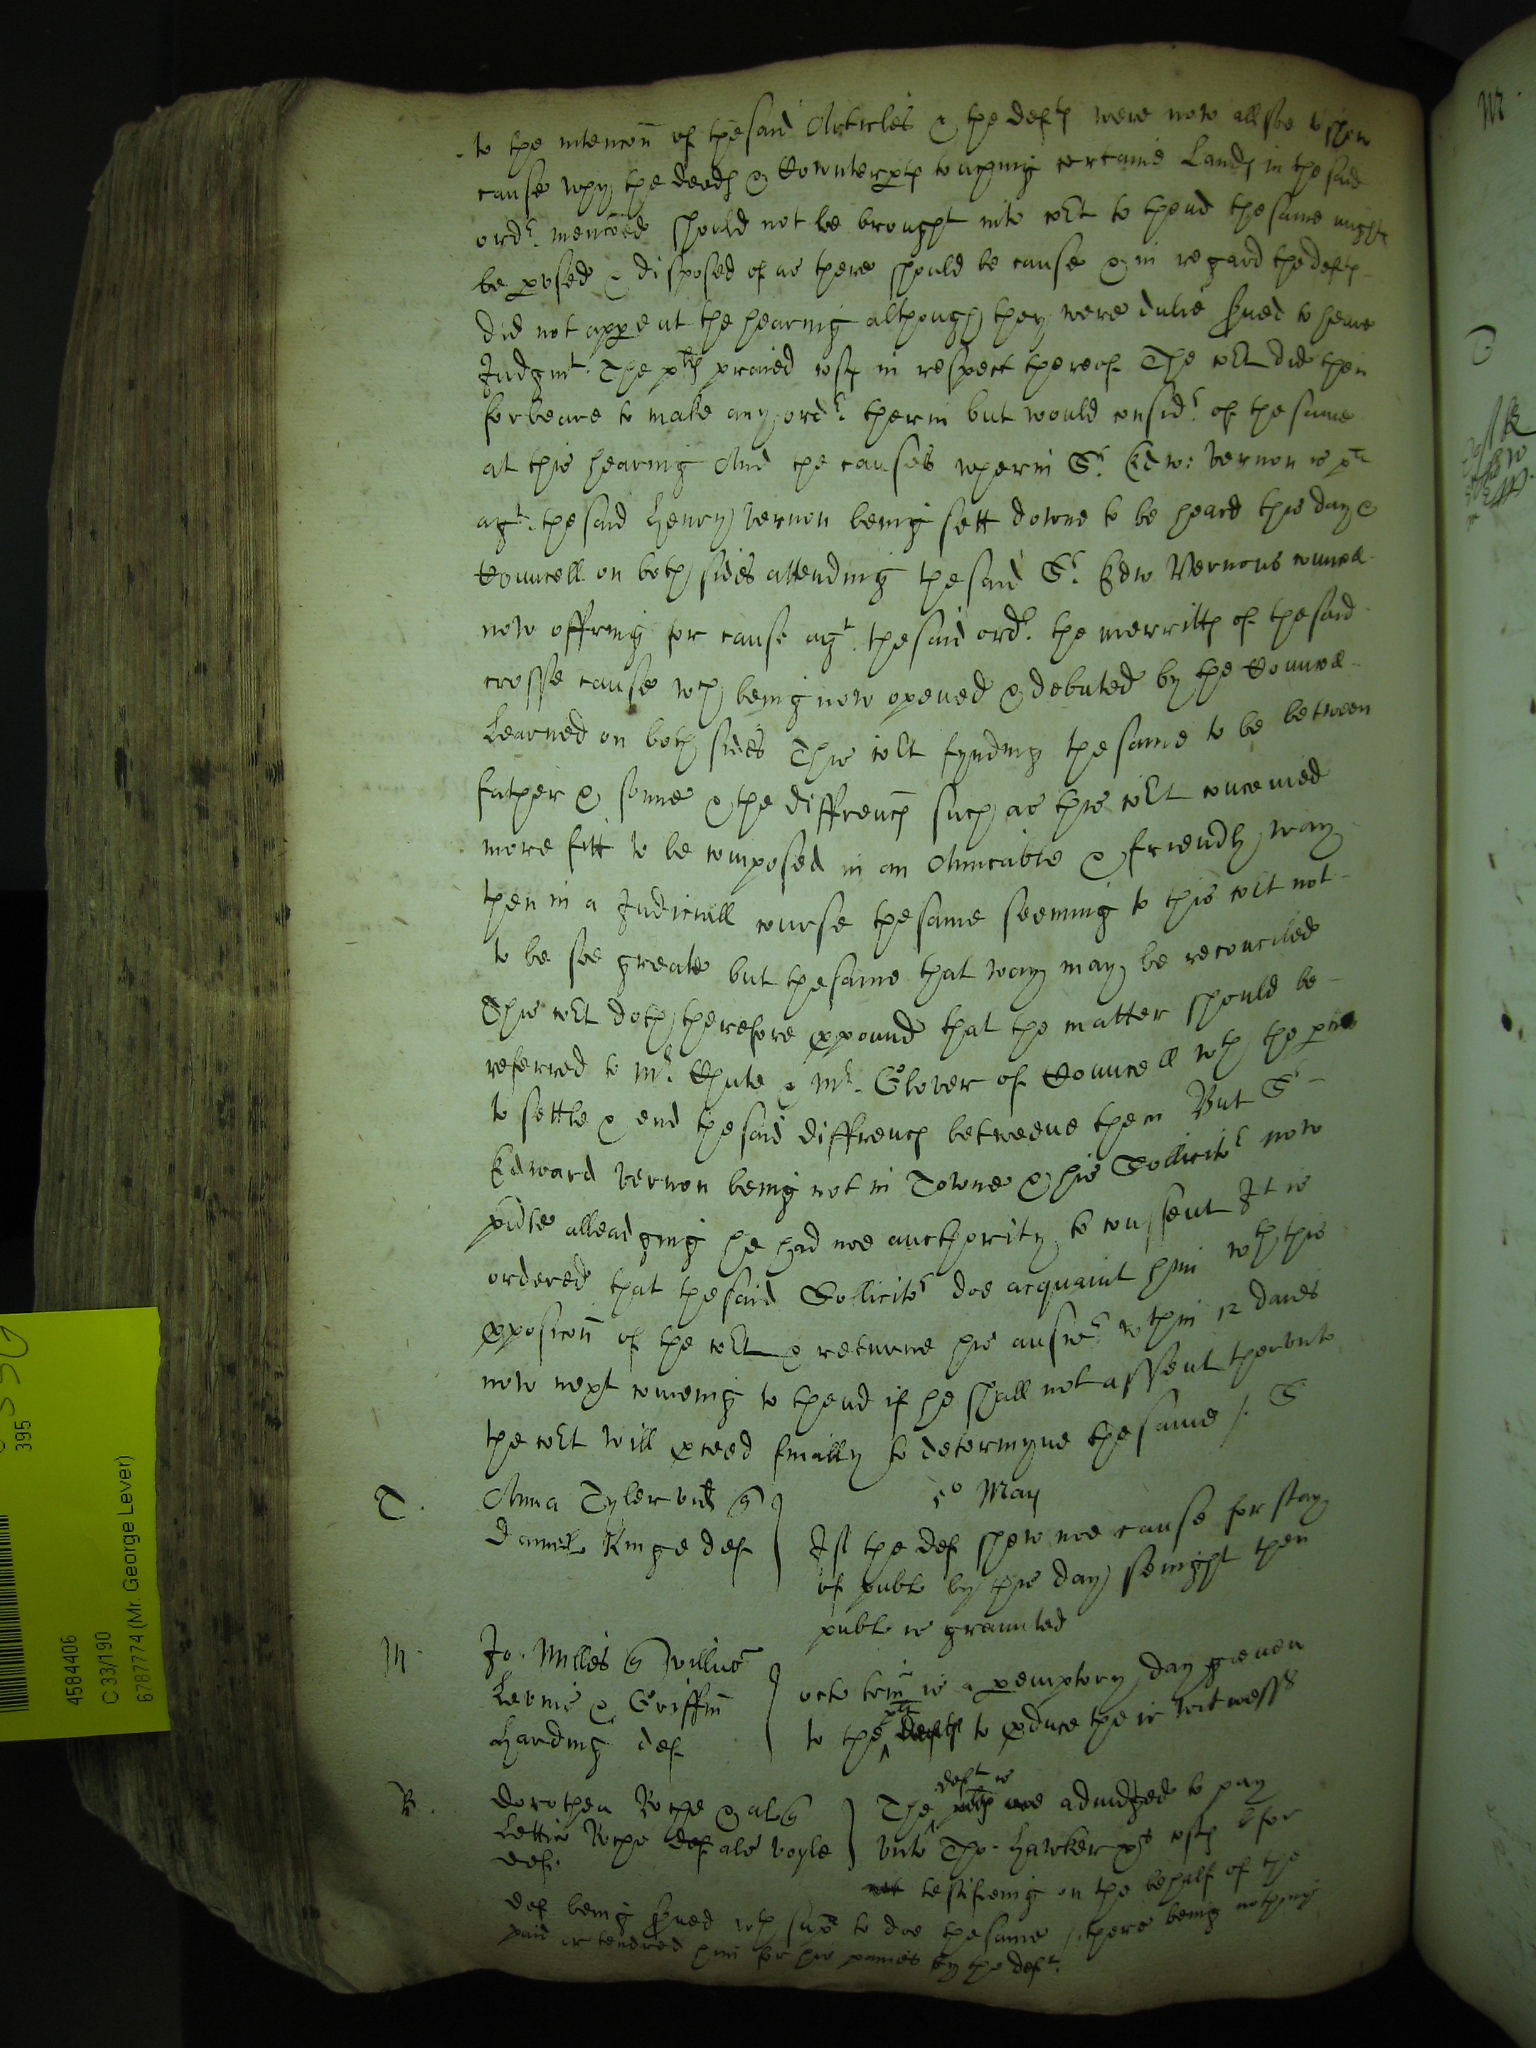 to the intencon of the said Articles & the defts were now allsoe to shew
cause why the deeds & Counterpts touching certaine Lands in the said
ordr. menconed should not be brought into cort to thend the same might
be pvsed & disposed of as there should be cause & in regard the defts
did not appe at the hearing although they were dulie served to heare
Judgmt. The plts praied costs in respect thereof The cort did then
forbeare to make any ordr. therin but would considr. of the same
at this hearing And the causes wherin Sr. Edw: Vernon is plt
agt. the said Henry Vernon being sett downe to be heard this day &
Councell on both sides attending the said Sr. Edw Vernons councell
now offring for cause agt. the said ordr. the merritts of the said
crosse cause wch being now opened & debated by the Councell
Learned on both sides This cort fynding the same to be between
father & sonne & the diffrencs such as this cort conceived
more fitt to be composed in an Amicable & friendly way
then in a Judiciall course the same seeming to this cort not
to be soe greate but the same that way may be reconciled
This cort doth therefore ppound that the matter should be
referred to Mr. Chute & Mr. Glover of Councell wth the pties
to settle & end the said diffrencs betweene them But Sr
Edward Vernon being not in Towne & his Sollicitr now
pnte alleadging he had noe aucthority to consent It is
ordered that the said Sollicitr doe acquaint him wth this
pposicon of the cort & returne his answr wthin 12 daies
now next comeing to thend if he shall not assent therunto
the cort will pceed finally to determyne the same /. S
T. Anna Tyler vid q
Daniell Kinge def
5o May
If the def shew noe cause for stay
of publ by this day senight then
publ is graunted
M. Jo. Milles q Willus
Lewis & Griffin
Harding def
octo trin is a pemptory day given
plt
to the defts to pduce their witnesses
R. Dorothea Roche & al q
Lettice Roche def als Boyle
def.
deft is
The plts are adiudged to pay
unto Tho. Hawker costs for
not testifieing on the behalf of the
def being served wth supa to doe the same / there being nothing
paid or tendred him for his paines by the deft.
4584406
C 33/190
6787774 (Mr. George Lever)
395